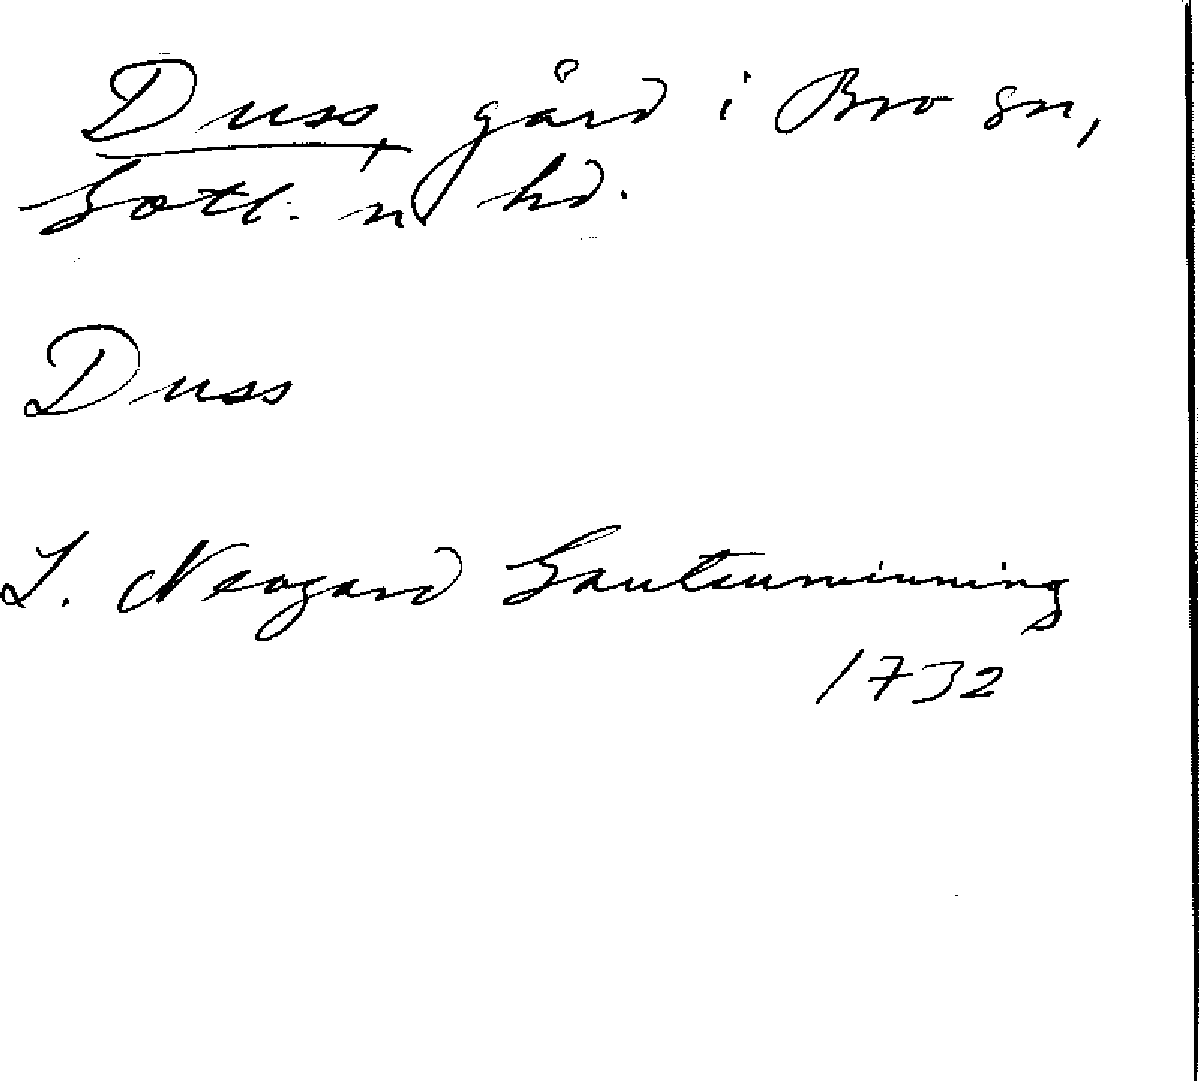 Duss, gård i Bro sn,
Gotl. n hd.
Duss
J. Neogard Gautauminning
1732